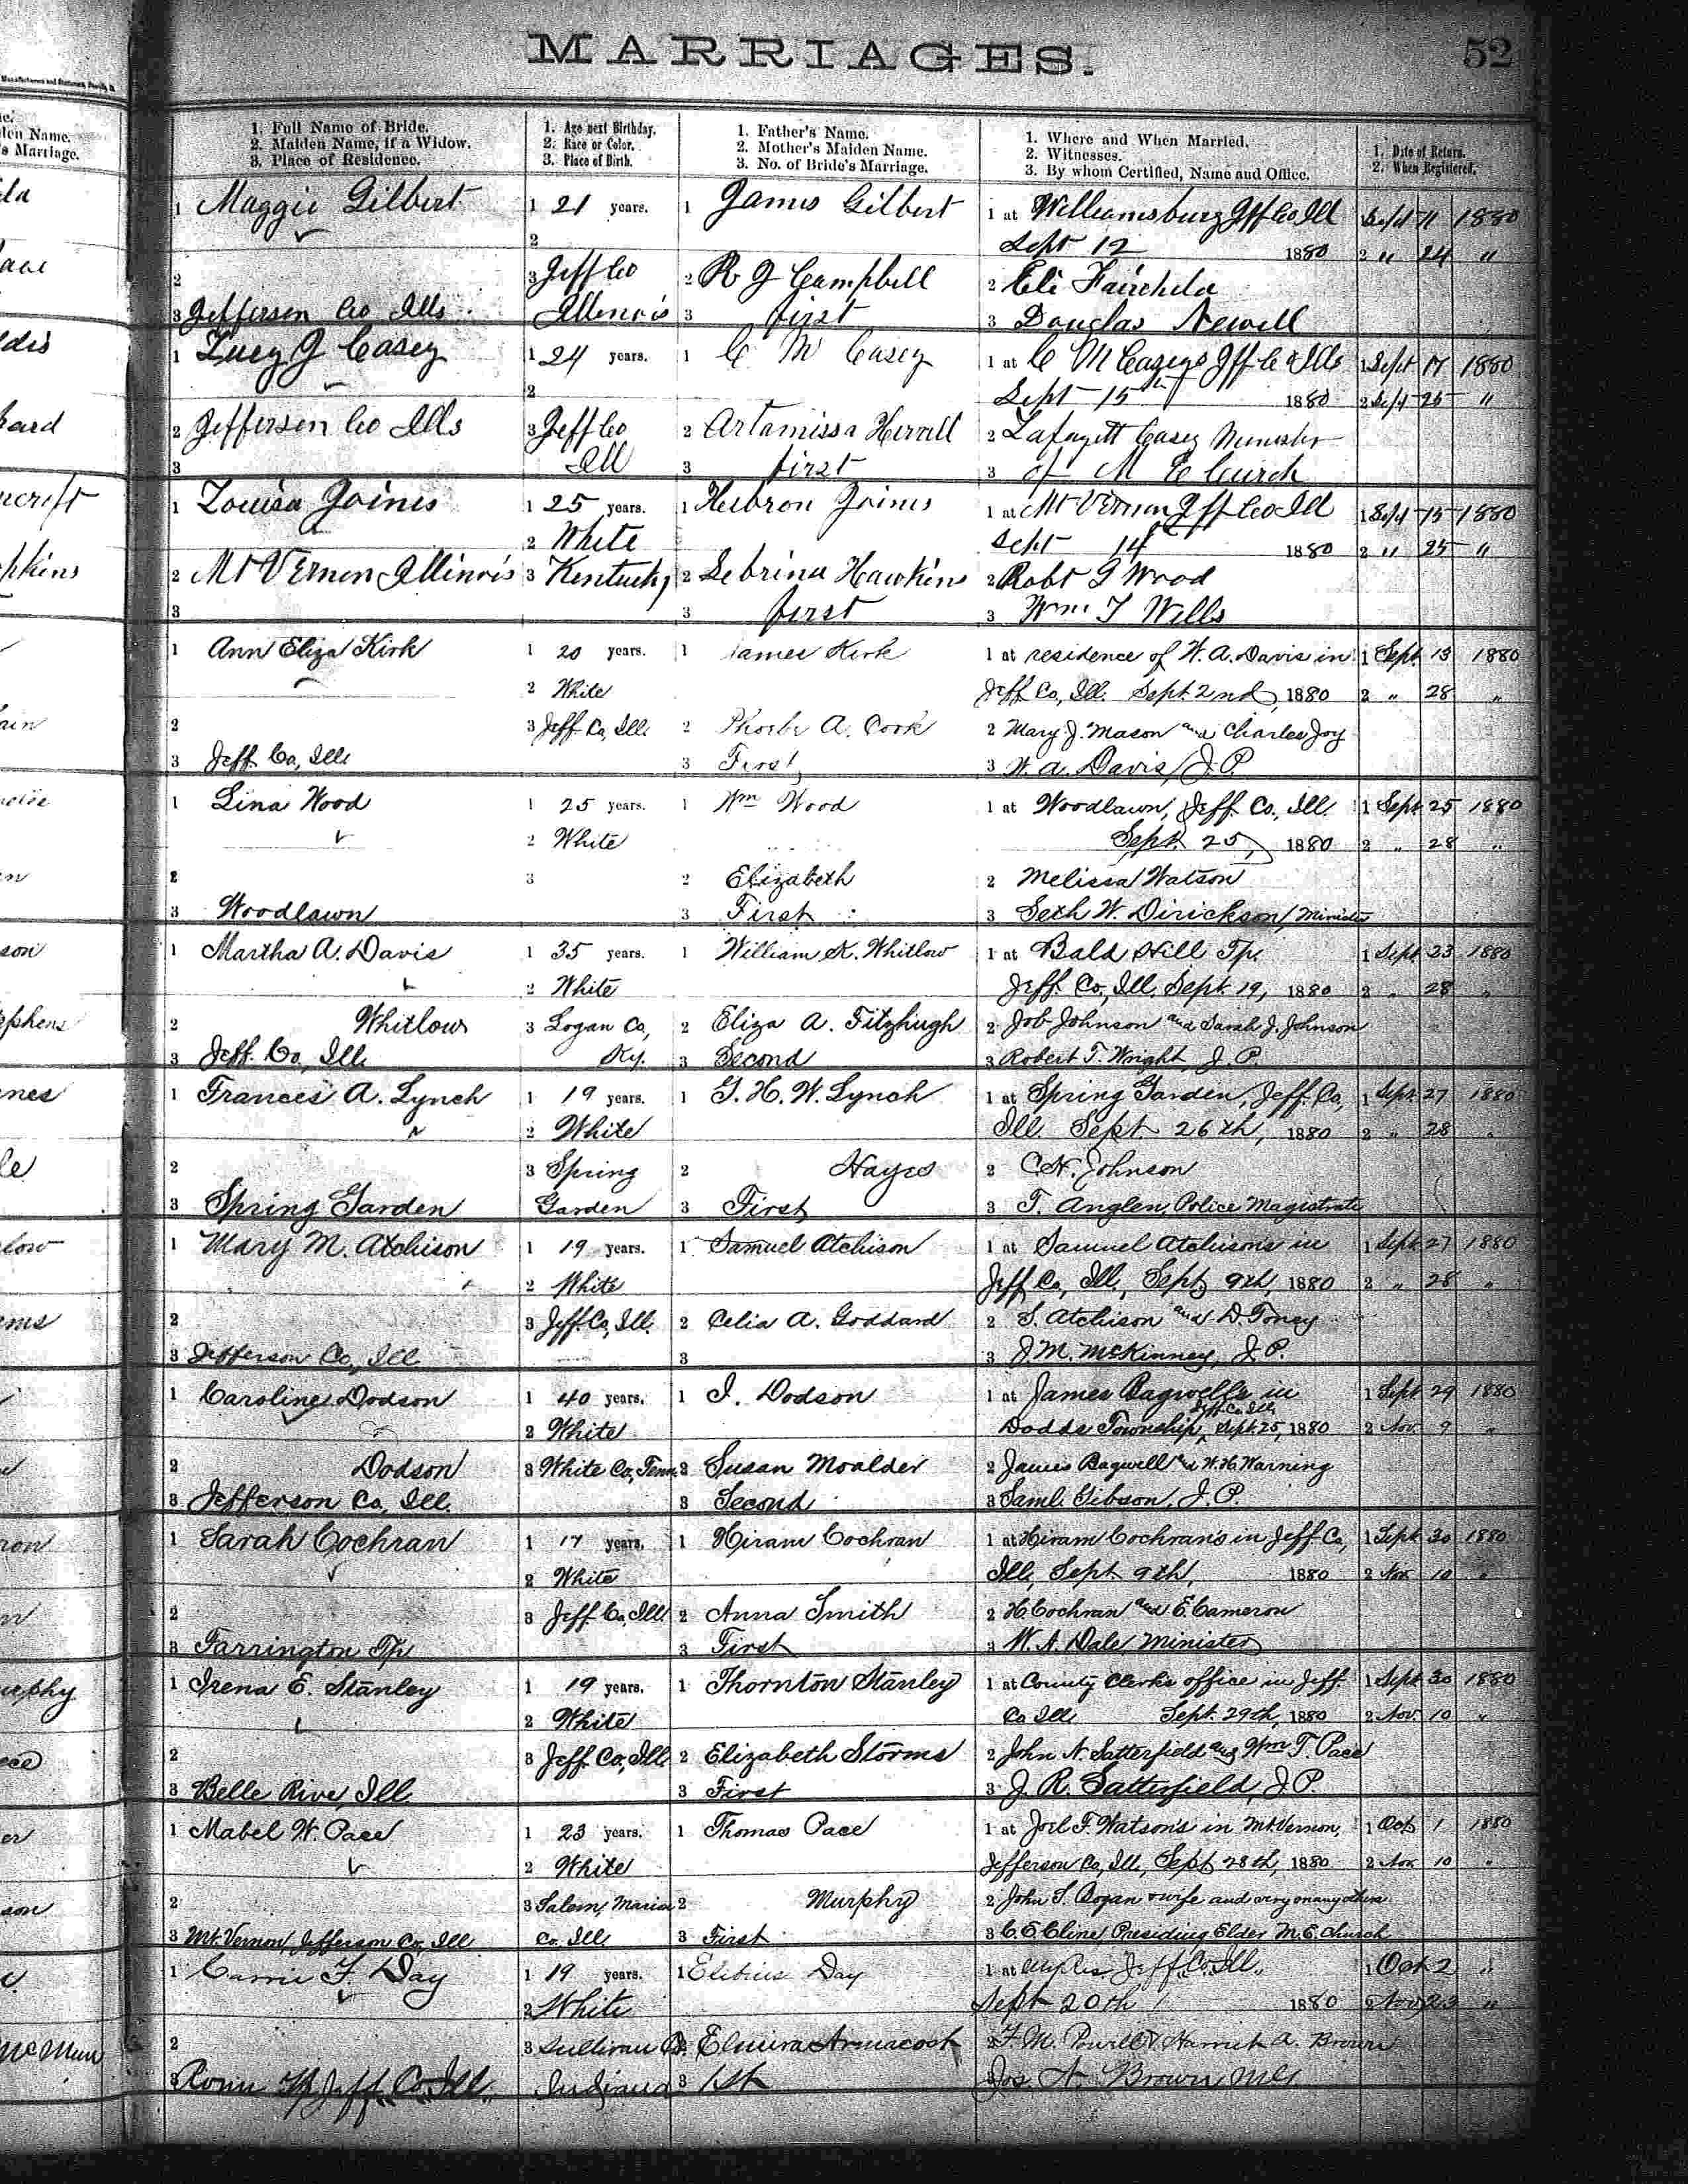 MARRIAGES.
52
Manufacturers and Stationers, Peoria, Ill.
len Name.
's Marriage.
1. Full Name of Bride.
2. Maiden Name, if a Widow.
3. Place of Residence.
1. Age next Birthday.
2. Race or Color.
3. Place of Birth.
1. Father's Name.
2. Mother's Maiden Name.
3. No. of Bride's Marriage.
1. Where and When Married.
2. Witnesses.
3. By whom Certified, Name and Office.
1. Date of Return.
2. When Registered.
1 Maggie Gilbert 1 21 years. 1 James Gilbert 1 at Williamsburg Jeff Co Ill Sept 11 1880
2 Sept 12 1880 2 " 24 "
2 3 Jeff Co 2 R J Campbell 2 Eli Fairchild
3 Jefferson Co Ills. Illinois 3 first 3 Douglas Newell
1 Lucy J Casey 1 24 years. 1 C M Casey 1 at C M Caseys Jeff Co Ills 1 Sept 17 1880
2 Sept 15th 1880 2 Sept 25 "
2 Jefferson Co Ills 3 Jeff Co 2 Artamissa Herrell 2 Lafayett Casey Minister
3 Ill 3 first 3 of M E Church
1 Louisa Joines 1 25 years. 1 Hebron Joines 1 at Mt Vernon Jeff Co Ill 1 Sept 15 1880
2 White Sept 14 1880 2 " 25 "
2 Mt Vernon Illinois 3 Kentucky 2 Sebrina Hawkins 2 Robt G Wood
3 3 first 3 Wm T Wells
1 Ann Eliza Kirk 1 20 years. 1 James Kirk 1 at residence of W. A. Davis in 1 Sept. 13 1880
2 White Jeff. Co, Ill. Sept. 2nd, 1880 2 " 28 "
2 3 Jeff. Co, Ill. 2 Phoebe A. Cook 2 Mary J. Mason and Charles Joy
3 Jeff. Co, Ill. 3 First 3 W. A. Davis, J. P.
1 Lina Wood 1 25 years. 1 Wm Wood 1 at Woodlawn, Jeff. Co., Ill. 1 Sept. 25 1880
2 White Sept. 25, 1880 2 " 28 "
2 3 2 Elizabeth 2 Melissa Watson
3 Woodlawn 3 First 3 Seth W. Dirickson, Minister
1 Martha A. Davis 1 35 years. 1 William K. Whitlow 1 at Bald Hill Tp. 1 Sept. 23 1880
2 White Jeff. Co, Ill. Sept. 19, 1880 2 " 28 "
2 Whitlow 3 Logan Co, 2 Eliza A. Fitzhugh 2 Job Johnson and Sarah J. Johnson
3 Jeff. Co, Ill. Ky. 3 Second 3 Robert T. Wright, J. P.
1 Frances A. Lynch 1 19 years. 1 G. H. W. Lynch 1 at Spring Garden, Jeff. Co, 1 Sept. 27 1880
2 White Ill. Sept. 26th, 1880 2 " 28 "
2 3 Spring 2 Hayes 2 C. H. Johnson
3 Spring Garden Garden 3 First 3 T. Anglen, Police Magistrate
1 Mary M. Atchison 1 19 years. 1 Samuel Atchison 1 at Samuel Atchison's in 1 Sept. 27 1880
2 White Jeff Co, Ill., Sept. 9th, 1880 2 " 28 "
2 3 Jeff. Co, Ill. 2 Celia A. Goddard 2 S. Atchison and D. Toney
3 Jefferson Co, Ill. 3 3 J. M. McKinney, J. P.
1 Caroline Dodson 1 40 years. 1 I. Dodson 1 at James Bagwell's in 1 Sept 29 1880
2 White Dodds Township, Jeff. Co. Ill. Sept. 25, 1880 2 Nov. 9 "
2 Dodson 3 White Co, Tenn. 2 Susan Moalder 2 James Bagwell and W. H. Warning
3 Jefferson Co, Ill. 3 Second 3 Saml. Gibson, J. P.
1 Sarah Cochran 1 17 years. 1 Hiram Cochran 1 at Hiram Cochran's in Jeff. Co, 1 Sept. 30 1880
2 White Ill, Sept 9th, 1880 2 Nov. 10 "
2 3 Jeff. Co, Ill 2 Anna Smith 2 H. Cochran and E. Cameron
3 Farrington Tp 3 First 3 W. A. Dale, Minister
1 Irena E. Stanley 1 19 years. 1 Thornton Stanley 1 at County Clerk's office in Jeff. 1 Sept. 30 1880
2 White Co Ill Sept. 29th, 1880 2 Nov. 10 "
2 3 Jeff. Co, Ill. 2 Elizabeth Storms 2 John N. Satterfield and Wm T. Pace
3 Belle Rive, Ill. 3 First 3 J. R. Satterfield, J. P.
1 Mabel W. Pace 1 23 years. 1 Thomas Pace 1 at Joel F. Watson's in Mt. Vernon, 1 Oct. 1 1880
2 White Jefferson Co, Ill, Sept 28th, 1880 2 Nov. 10 "
2 3 Salem, Marion 2 Murphy 2 John S. Bogan & wife and very many others
3 Mt. Vernon, Jefferson Co, Ill Co. Ill 3 First 3 C. E. Cline, Presiding Elder M. E. Church
1 Carrie F. Day 1 19 years. 1 Day 1 at Jeff. Co. Ill. 1 Oct 2 "
2 White Sept 20th 1880 2 Nov 23 "
2 3 Sullivan Co. Elmira Armacost 2 F. M. Powell & Harriet A. Brown
3 Rome Tp Jeff Co. Ill. Indiana 3 1st Jos. A. Brown MG